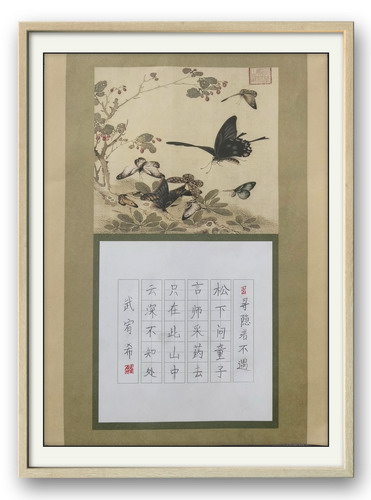 寻隐者不遇
松下问童子
言师采药去
只在此山中
云深不知处
武宥希